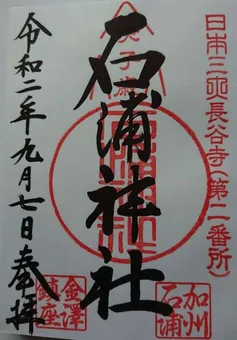 日本三大長谷寺(第二番所)
石浦神社
令和二年九月七日奉拝
加州
石浦
金澤
鎮座